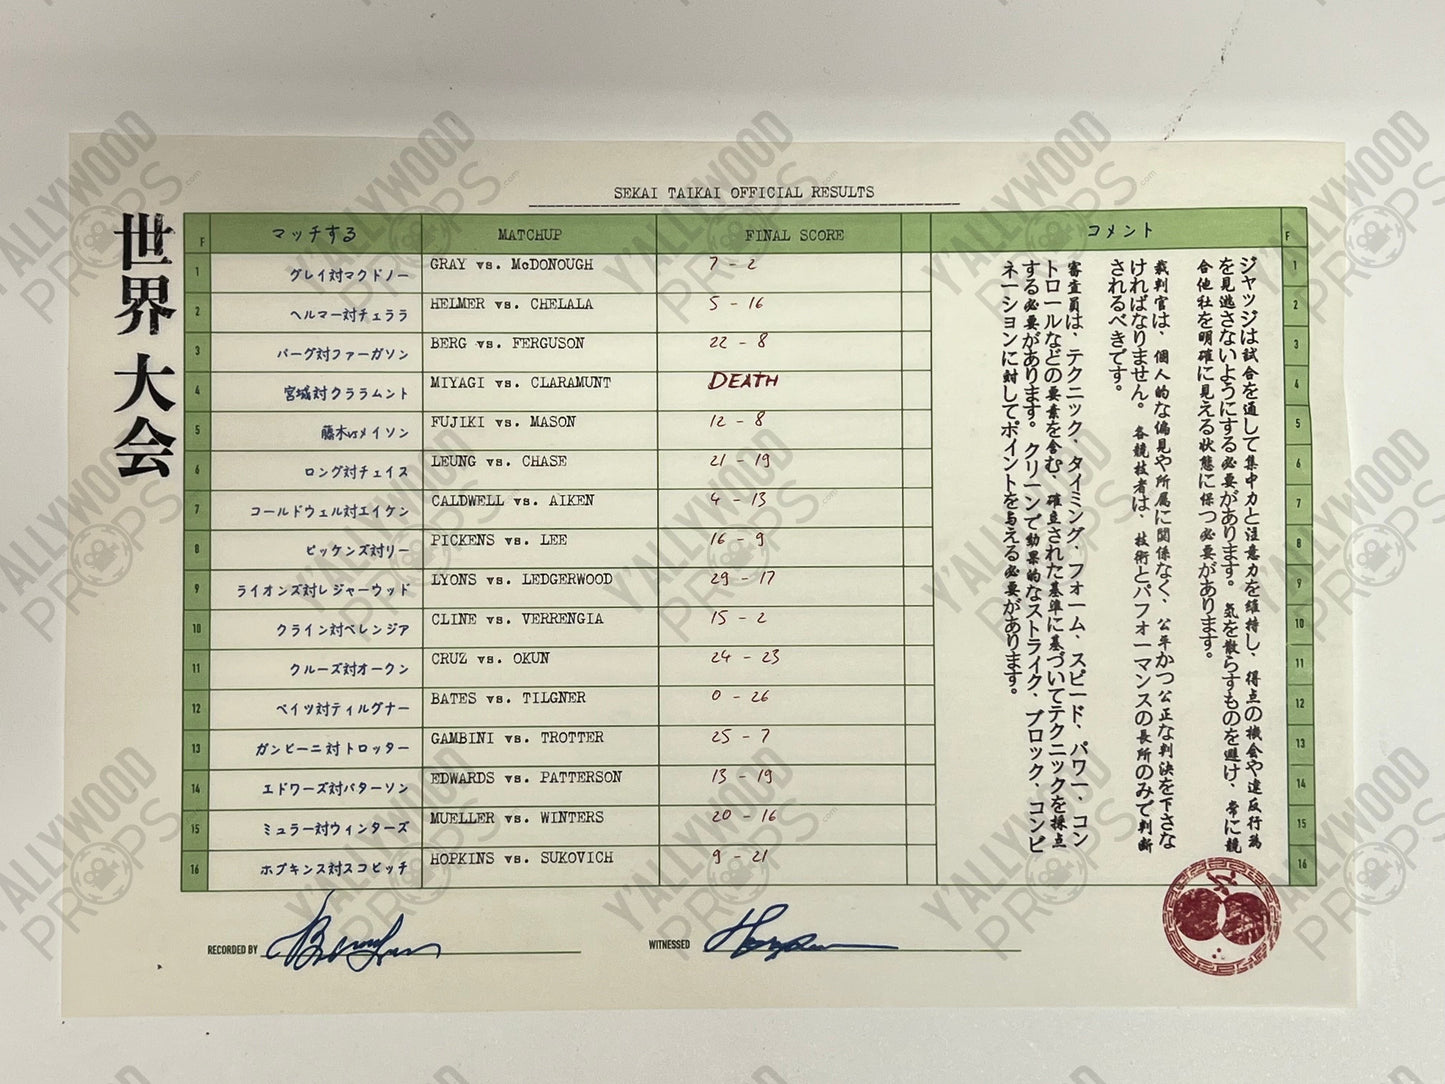 SEKAI TAIKAI OFFICIAL RESULTS
世界大会
F マッチする MATCHUP FINAL SCORE コメント F
1 グレイ対マクドノー GRAY vs. McDONOUGH 7 - 2 1
2 ヘルマー対チェララ HELMER vs. CHELALA 5 - 16 2
3 バーグ対ファーガソン BERG vs. FERGUSON 22 - 8 3
4 宮城対クララムント MIYAGI vs. CLARAMUNT DEATH 4
5 藤木vsメイソン FUJIKI vs. MASON 12 - 8 5
6 ロング対チェイス LEUNG vs. CHASE 21 - 19 6
7 コールドウェル対エイケン CALDWELL vs. AIKEN 4 - 13 7
8 ピッケンズ対リー PICKENS vs. LEE 16 - 9 8
9 ライオンズ対レジャーウッド LYONS vs. LEDGERWOOD 29 - 17 9
10 クライン対ベレンジア CLINE vs. VERRENGIA 15 - 2 10
11 クルーズ対オークン CRUZ vs. OKUN 24 - 23 11
12 ベイツ対ティルグナー BATES vs. TILGNER 0 - 26 12
13 ガンビーニ対トロッター GAMBINI vs. TROTTER 25 - 7 13
14 エドワーズ対パターソン EDWARDS vs. PATTERSON 13 - 19 14
15 ミュラー対ウィンターズ MUELLER vs. WINTERS 20 - 16 15
16 ホプキンス対スコビッチ HOPKINS vs. SUKOVICH 9 - 21 16
ジャッジは試合を通して集中力と注意力を維持し、得点の機会や違反行為
を見逃さないようにする必要があります。気を散らすものを避け、常に競
合他社を明確に見える状態に保つ必要があります。
裁判官は、個人的な偏見や所属に関係なく、公平かつ公正な判決を下さな
ければなりません。各競技者は、技術とパフォーマンスの長所のみで判断
されるべきです。
審査員は、テクニック、タイミング、フォーム、スピード、パワー、コン
トロールなどの要素を含む、確立された基準に基づいてテクニックを採点
する必要があります。クリーンで効果的なストライク、ブロック、コンビ
ネーションに対してポイントを与える必要があります。
RECORDED BY
WITNESSED
Y'ALLYWOOD PROPS.com